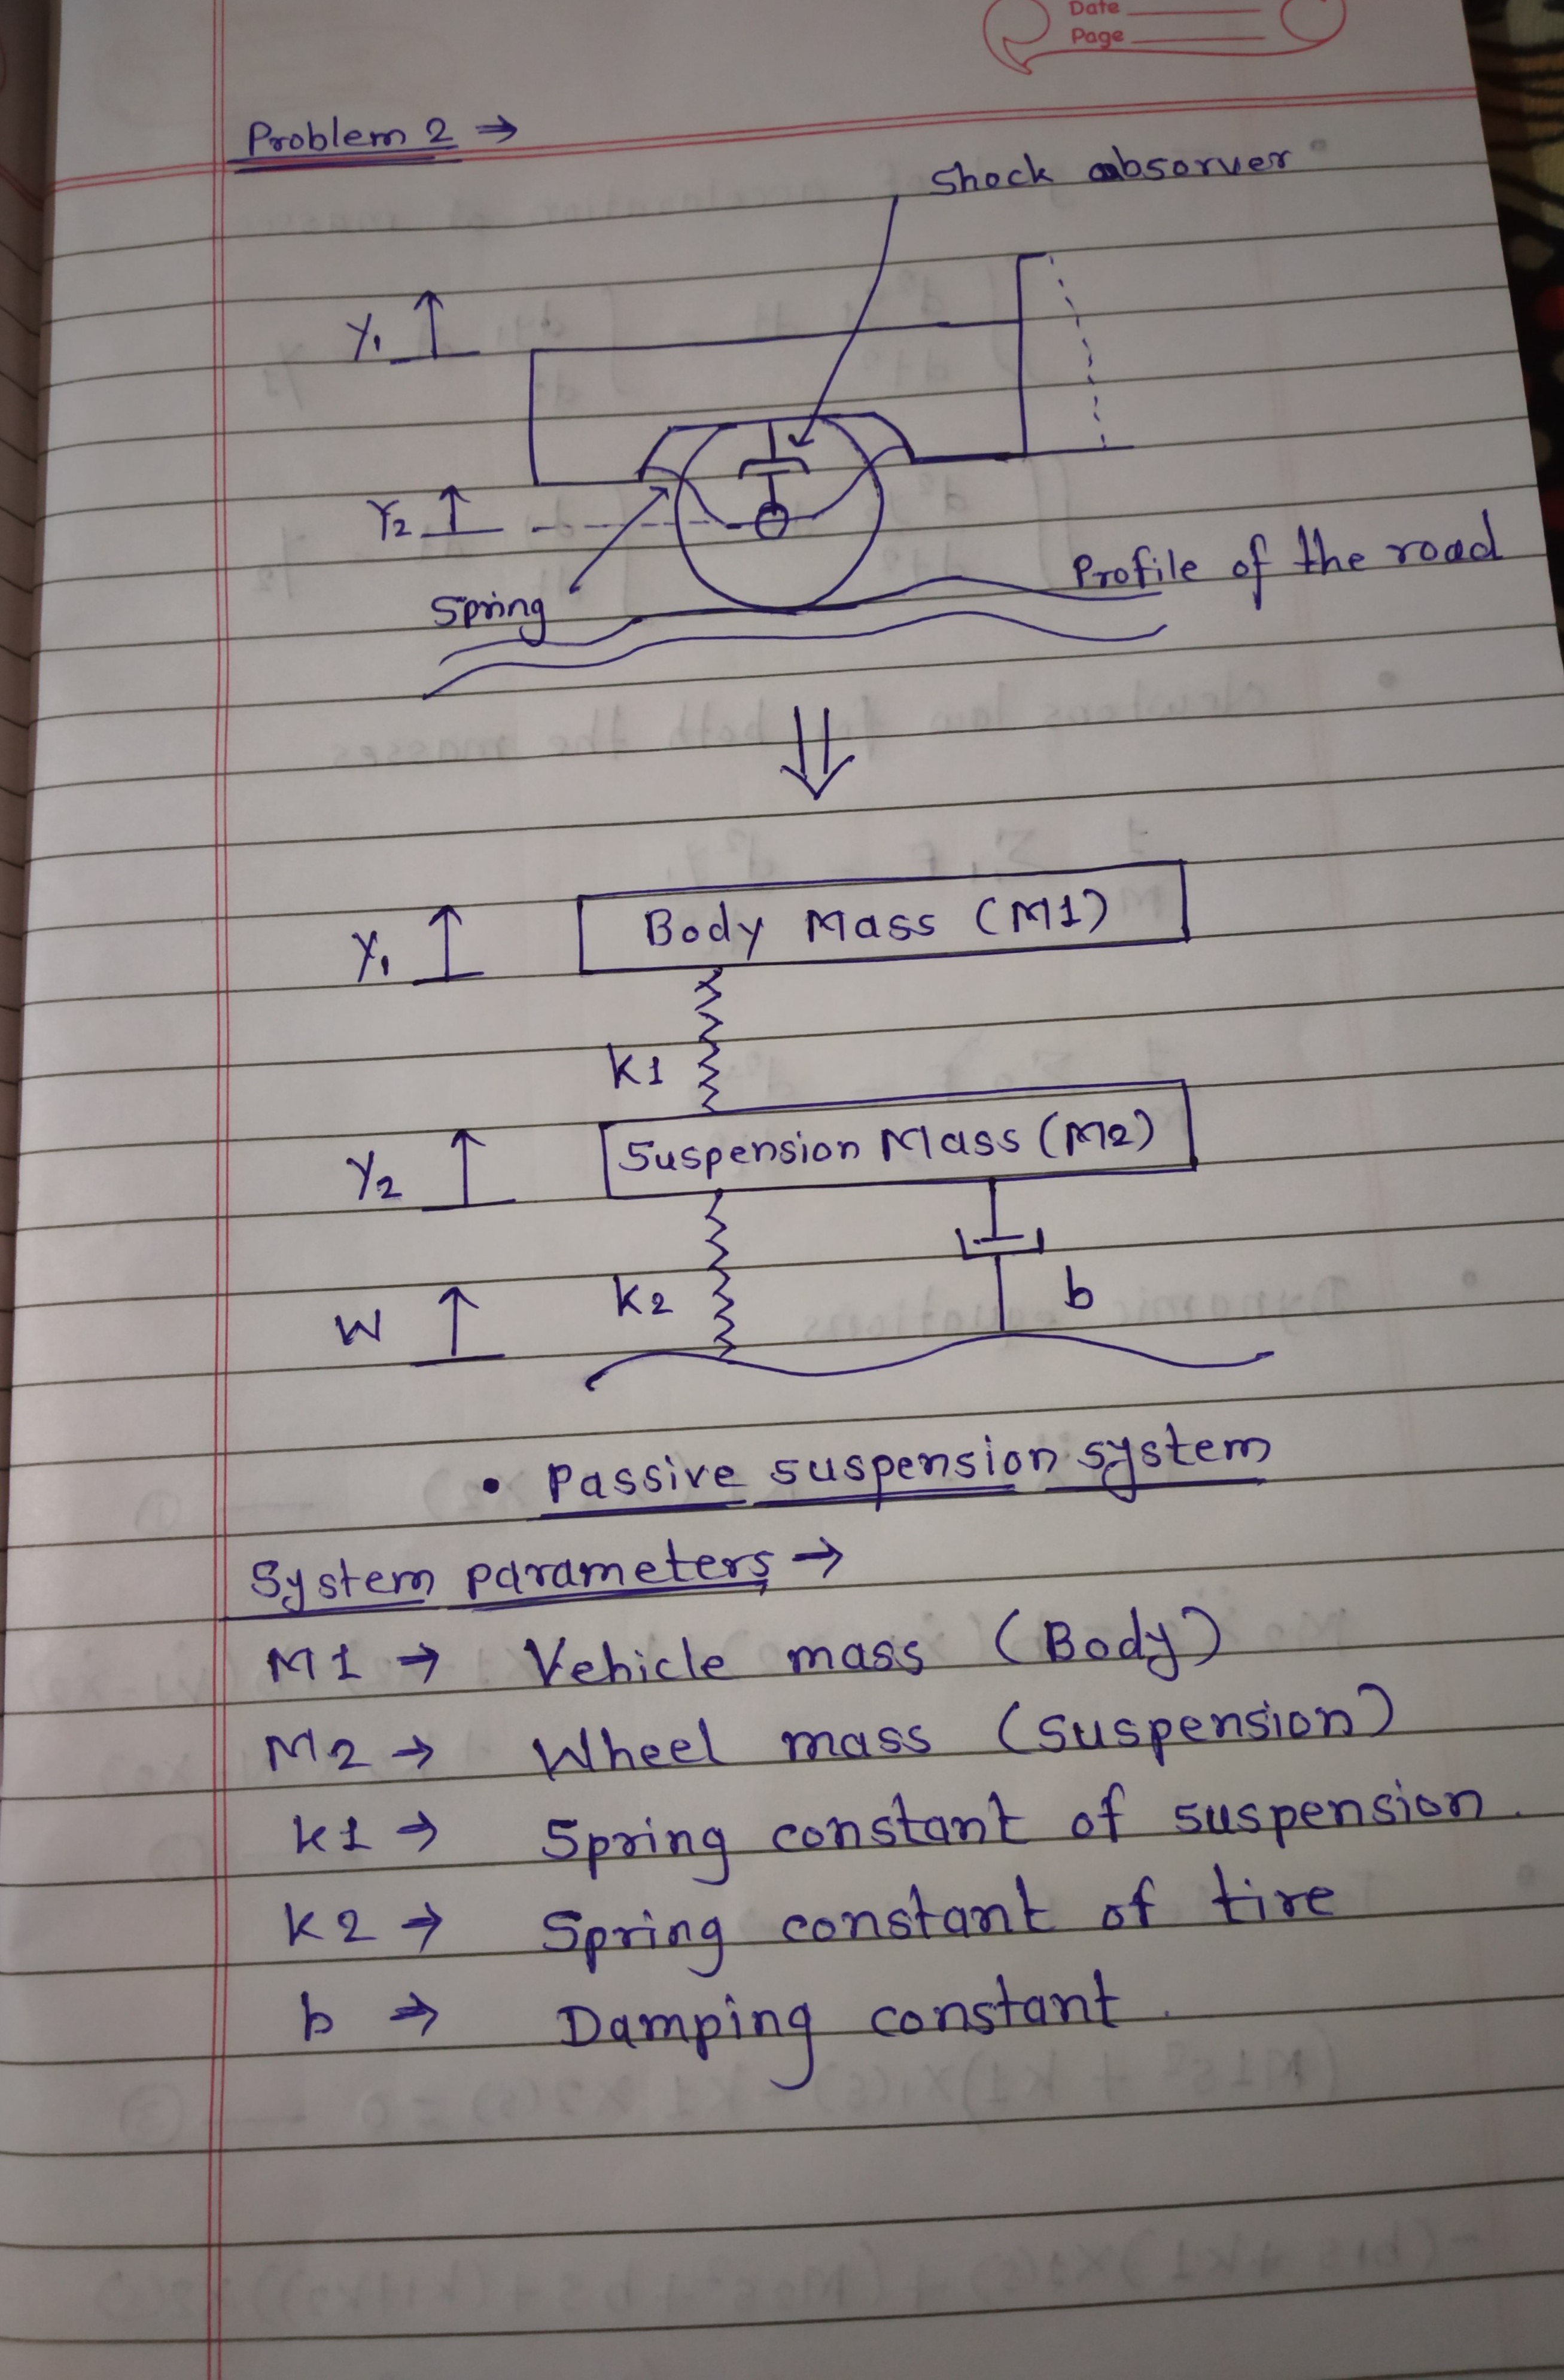 Date
Page
Problem 2 →
Shock absorver
Y1
Y2
Spring
Profile of the road
Body Mass (M1)
Y1
K1
Suspension Mass (M2)
Y2
K2
b
W
• Passive suspension system
System parameters →
M1 → Vehicle mass (Body)
M2 → Wheel mass (suspension)
k1 → Spring constant of suspension.
K2 → Spring constant of tire
b → Damping constant.